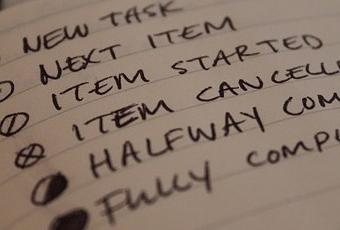 NEW TASK
NEXT ITEM
ITEM STARTED
ITEM CANCELL
HALFWAY COM
FULLY COMPL